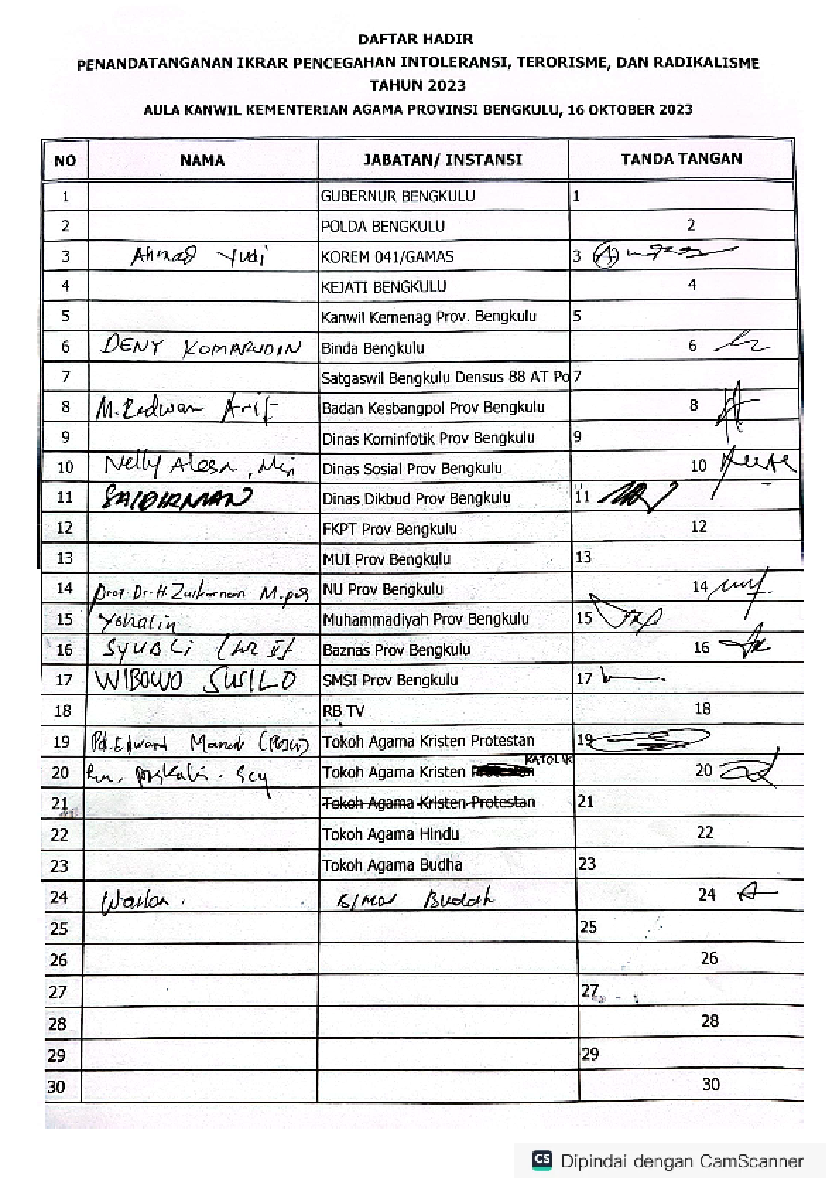 DAFTAR HADIR
PENANDATANGANAN IKRAR PENCEGAHAN INTOLERANSI, TERORISME, DAN RADIKALISME
TAHUN 2023
AULA KANWIL KEMENTERIAN AGAMA PROVINSI BENGKULU, 16 OKTOBER 2023
NO NAMA JABATAN/ INSTANSI TANDA TANGAN
1 GUBERNUR BENGKULU 1
2 POLDA BENGKULU 2
3 Ahmad Yudi KOREM 041/GAMAS 3
4 KEJATI BENGKULU 4
5 Kanwil Kemenag Prov. Bengkulu 5
6 DENY KOMARUDIN Binda Bengkulu 6
7 Satgaswil Bengkulu Densus 88 AT Po 7
8 M. Redwan Arif Badan Kesbangpol Prov Bengkulu 8
9 Dinas Kominfotik Prov Bengkulu 9
10 Nelly Alesa, Dinas Sosial Prov Bengkulu 10
11 SAIDIRMAN Dinas Dikbud Prov Bengkulu 11
12 FKPT Prov Bengkulu 12
13 MUI Prov Bengkulu 13
14 Prof. Dr. H. M.Pd NU Prov Bengkulu 14
15 Muhammadiyah Prov Bengkulu 15
16 Baznas Prov Bengkulu 16
17 WIBOWO SUSILO SMSI Prov Bengkulu 17
18 RB TV 18
19 Pd. Edward Tokoh Agama Kristen Protestan 19
20 Tokoh Agama Kristen KATOLIK 20
21 Tokoh Agama Kristen Protestan 21
22 Tokoh Agama Hindu 22
23 Tokoh Agama Budha 23
24 Buddah 24
25 25
26 26
27 27
28 28
29 29
30 30
CS Dipindai dengan CamScanner